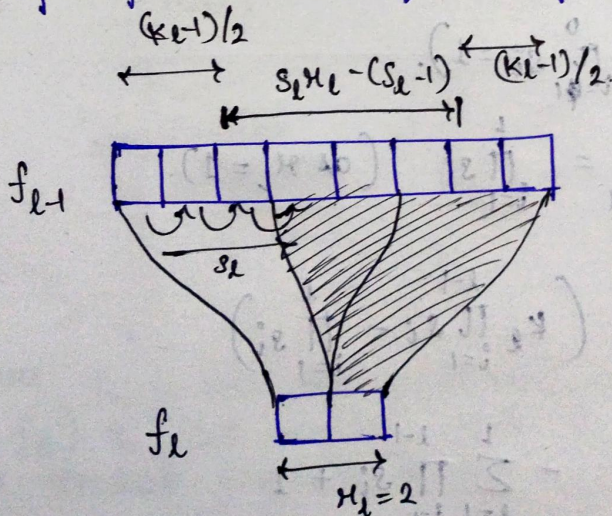 (kℓ-1)/2
Sℓ rℓ - (Sℓ-1)
(kℓ-1)/2
fℓ-1
Sℓ
fℓ
rℓ = 2